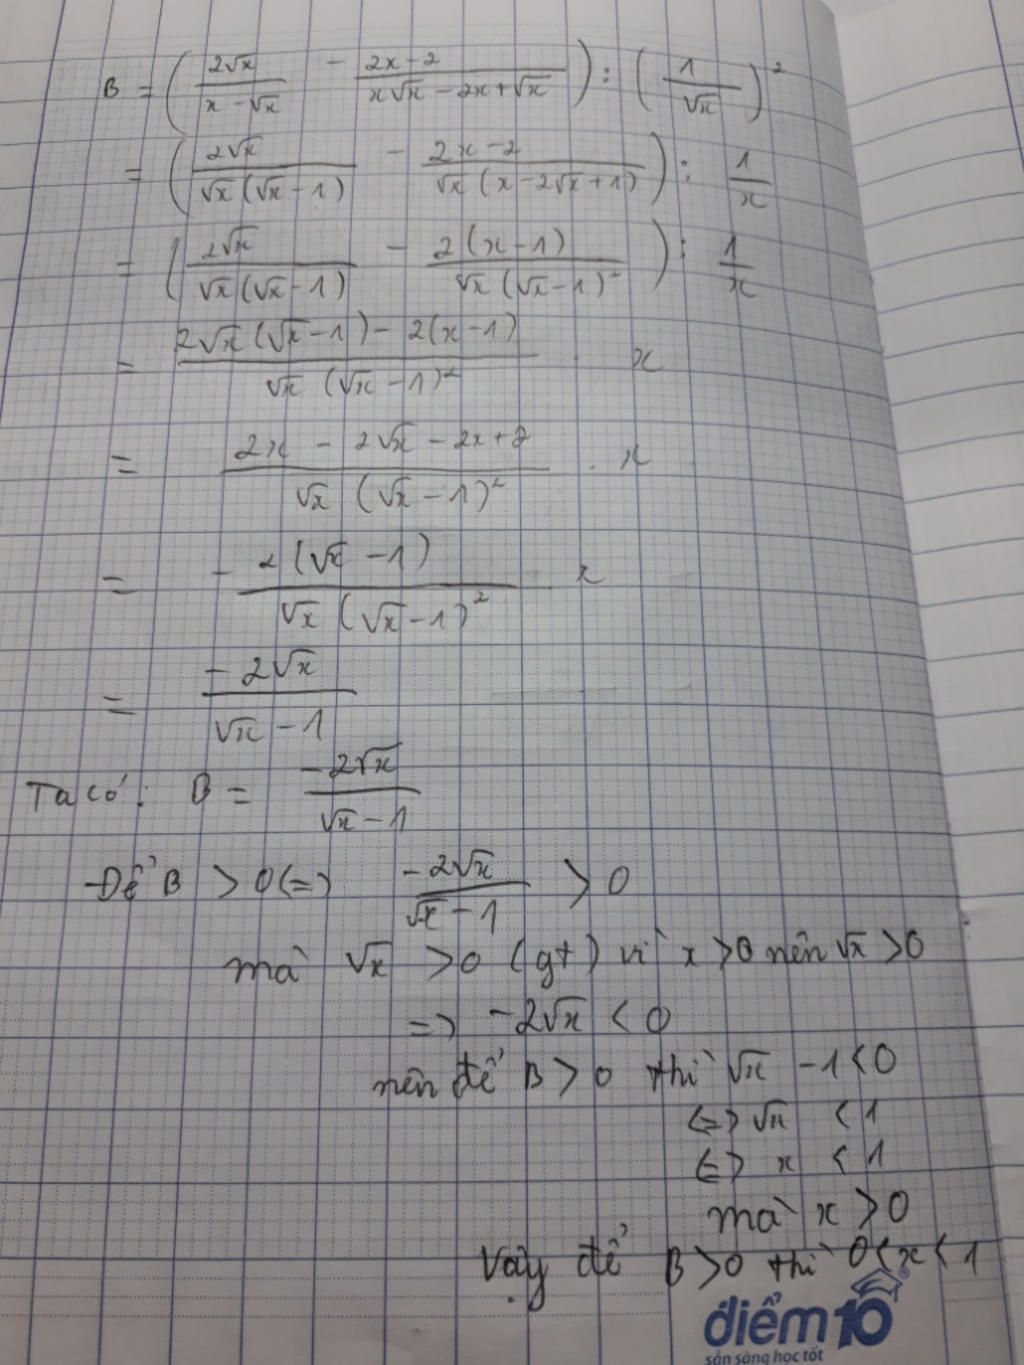 B = (2√x / (x - √x) - (2x - 2) / (x√x - 2x + √x)) : (1 / √x)²
= (2√x / (√x (√x - 1)) - (2x - 2) / (√x (x - 2√x + 1))) : 1 / x
= (2√x / (√x (√x - 1)) - 2(x - 1) / (√x (√x - 1)²)) : 1 / x
= (2√x (√x - 1) - 2(x - 1)) / (√x (√x - 1)²) . x
= (2x - 2√x - 2x + 2) / (√x (√x - 1)²) . x
= - 2(√x - 1) / (√x (√x - 1)²) . x
= -2√x / (√x - 1)
Ta có: B = -2√x / (√x - 1)
Để B > 0 (=) -2√x / (√x - 1) > 0
mà √x > 0 (gt) vì x > 0 nên √x > 0
=> -2√x < 0
nên để B > 0 thì √x - 1 < 0
<=> √x < 1
<=> x < 1
mà x > 0
Vậy để B > 0 thì 0 < x < 1
điểm 10
®
sẵn sàng học tốt